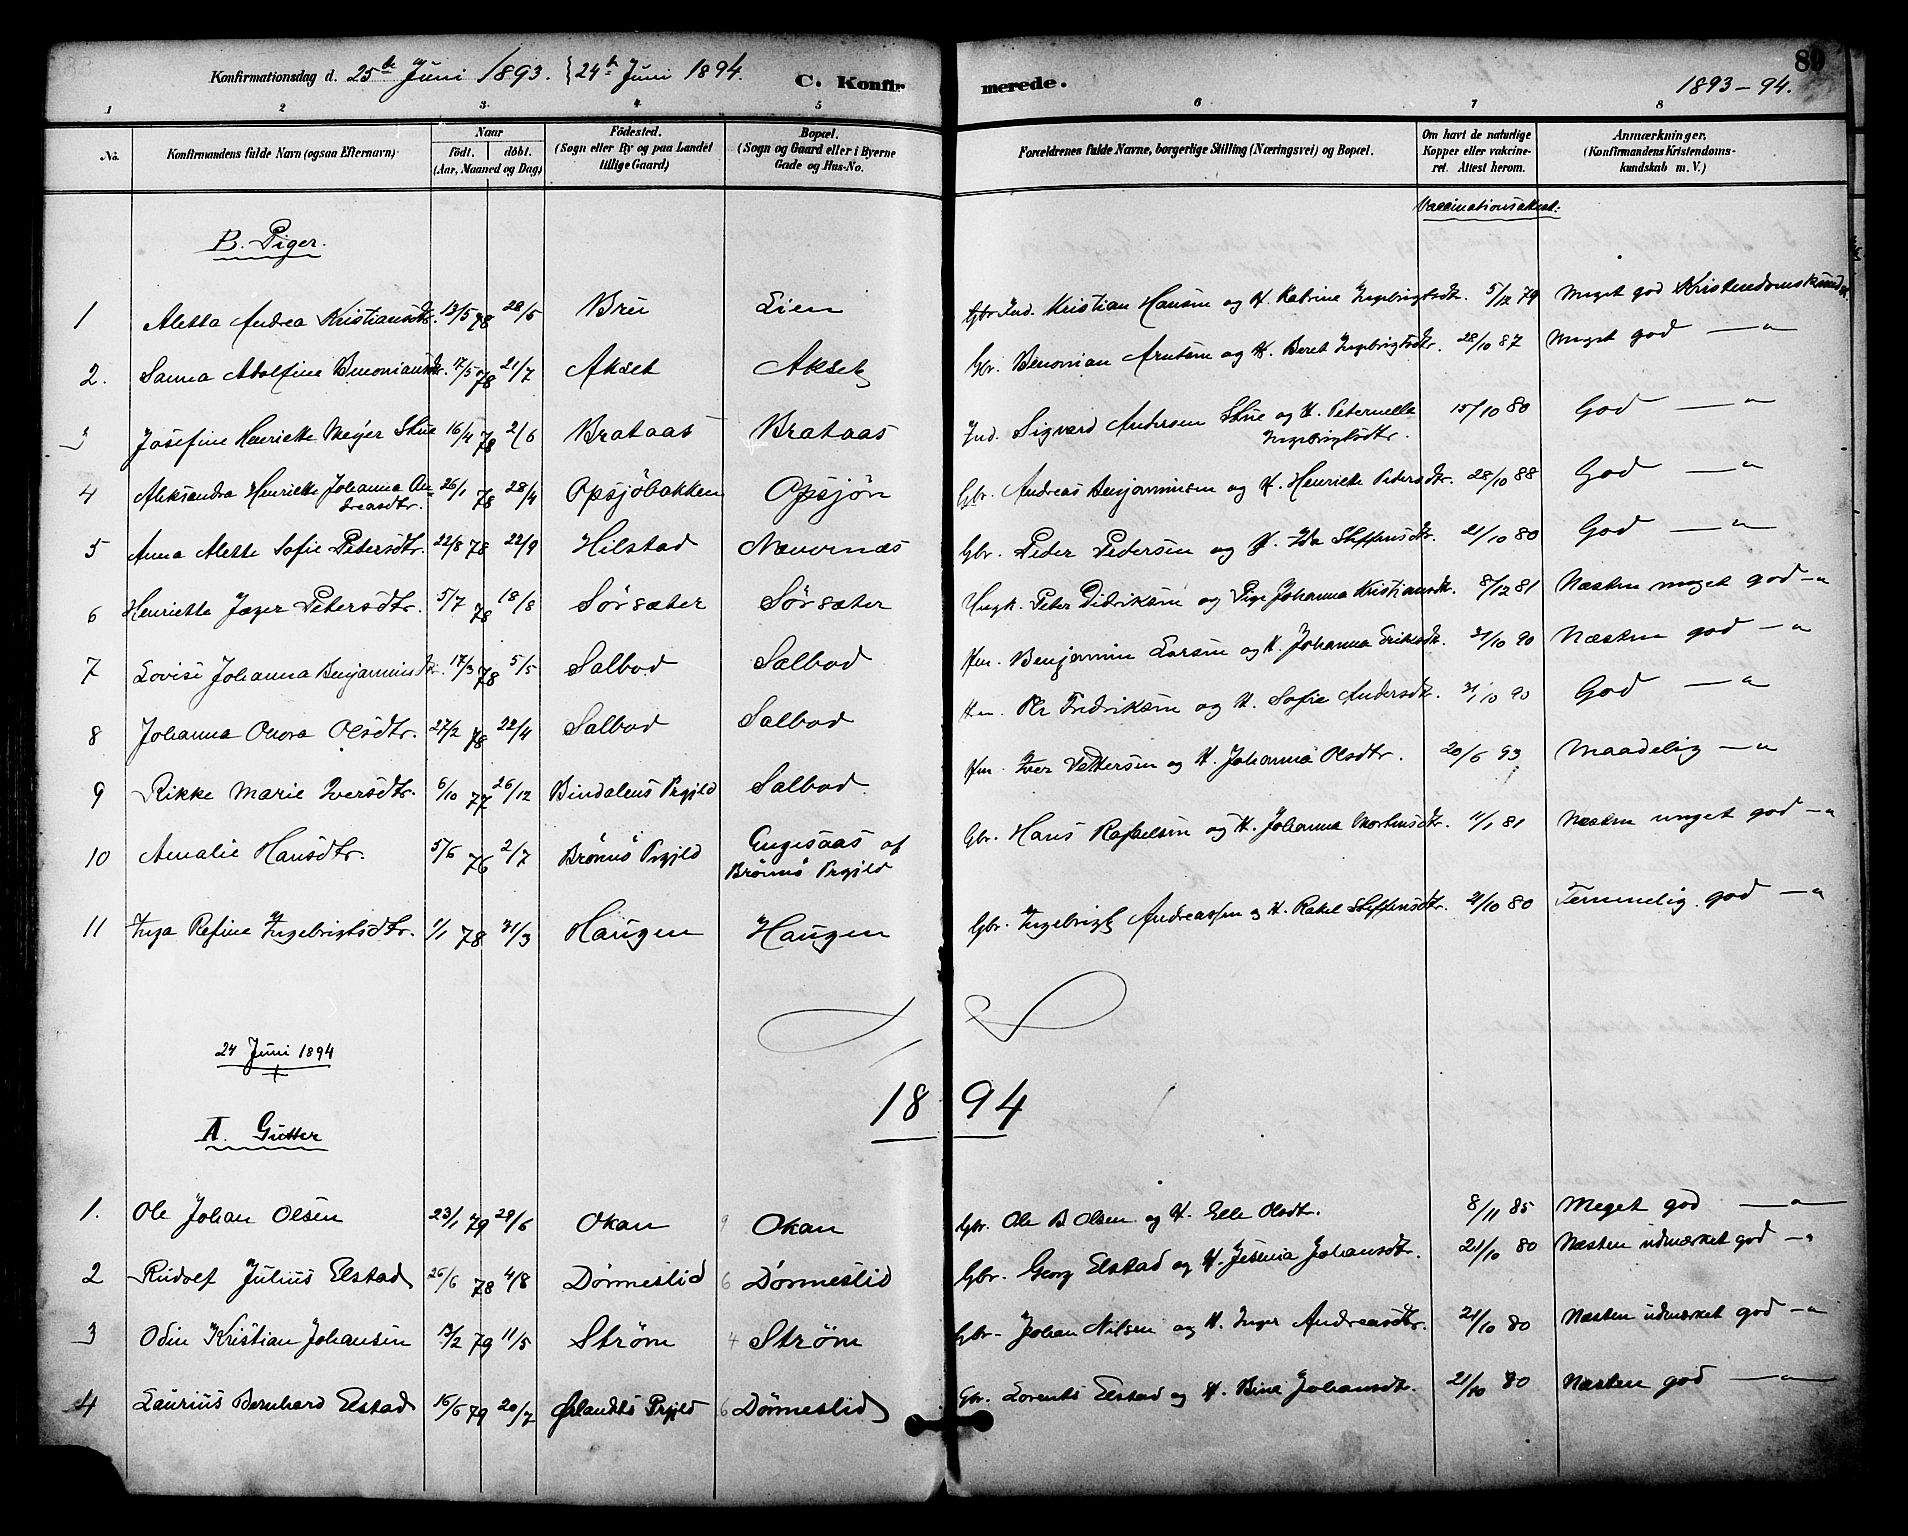 Konfirmationsdag d. 25de Juni 1893. } 24de Juni 1894. C. Konfirmerede. 89
1893-94.
1 2 3 4 5 6 7 8
No. Konfirmandens fulde Navn (ogsaa Efternavn) Naar födt. döbt. (Aar, Maaned og Dag) Födested. (Sogn eller By og paa Landet tillige Gaard) Bopæl. (Sogn og Gaard eller i Byerne Gade og Hus-No. Forældrenes fulde Navne, borgerlige Stilling (Næringsvei) og Bopæl. Om havt de naturlige Kopper eller vakcineret. Attest herom. Anmærkninger. (Konfirmandens Kristendomskundskab m. V.)
Vaccinationsattest:
B. Piger.
1 Aletta Andrea Kristiansdtr. 13/5 78 28/5 Bru Lien Gbr. Ind. Kristian Hansen og H. Katrine Ingebrigtsdtr. 5/12 79 Meget god Kristendomskundsk.
2. Sanna Adolfine Benoniansdtr. 17/5 78 21/7 Akset Akset Gbr. Benonian Arntsen og H. Beret Ingebrigtsdtr. 28/10 87 Meget god —"—
3 Josefine Henriette Meyer Stue 16/4 78 2/6 Brataas Brataas Ind. Sigvard Andersen Stue og H. Peternella Ingebrigtsdtr. 15/10 80 God —"—
4 Aleksandra Henriette Johanna Andreasdtr. 26/1 78 28/4 Opsjöbakken Opsjøn Gbr. Andreas Benjaminsen og H. Henriette Petersdtr. 28/10 88 God —"—
5 Anna Alette Sofie Petersdtr. 22/8 78 22/9 Hilstad Nævernæs Gbr. Peder Pedersen og H. Ida Steffensdtr. 21/10 80 God —"—
6 Henriette Jæger Petersdtr. 5/7 78 18/8 Sörsæter Sörsæter Ungk. Peter Didriksen og Pige Johanna Kristiansdtr. 8/12 81 Næsten meget god —"—
7 Lovise Johanna Benjaminsdtr. 17/3 78 5/5 Salbod Salbod Hm. Benjamin Larsen og H. Johanna Eriksdtr. 21/10 90 Næsten god —"—
8 Johanna Olsdtr. 27/2 78 22/4 Salbod Salbod Hm. Fredriksen og H. Sofie Andersdtr. 21/10 90 God —"—
9 Rikke Marie Iversdtr. 6/10 77 26/12 Bindalens Prgjld Salbod Hm. Iver Pettersen og H. Johanna Olsdtr. 20/6 93 Maadelig —"—
10 Amalie Hansdtr. 5/6 76 2/7 Brönnö Prgjld af Brönnö Prgjld Gbr. Hans Rafaelsen og H. Johanna Mortensdtr. 11/1 81 Næsten meget god —"—
11 Inga Refine Ingebrigtsdtr. 1/1 78 31/3 Haugen Haugen Gbr. Ingebrigt Andreassen og H. Rakel Steffensdtr. 21/10 80 Temmelig god —"—
24 Juni 1894
1894
A. Gutter
1. Ole Johan Olsen 23/1 79 29/6 Okan 9 Okan Gbr. Ole B Olsen og H. Elle Olsdt. 8/11 85 Meget god —"—
2 Rudolf Julius Elstad 26/6 78 4/8 Dörmeslid 6 Dörmeslid Gbr. Georg Elstad og H. Jesenia Johansdtr. 21/10 80 Næsten udmærket god —"—
3 Odin Kristian Johansen 13/2 79 11/5 Strøm 4 Strøm Gbr. Johan Nilsen og H. Inger Andreasdtr. 21/10 80 Næsten udmærket god —"—
4 Laurius Bernhard Elstad 16/6 79 20/7 Ørlandets Prgjld 6 Dörmeslid Gbr. Lorents Elstad og H. Bine Johansdtr. 21/10 80 Næsten god —"—